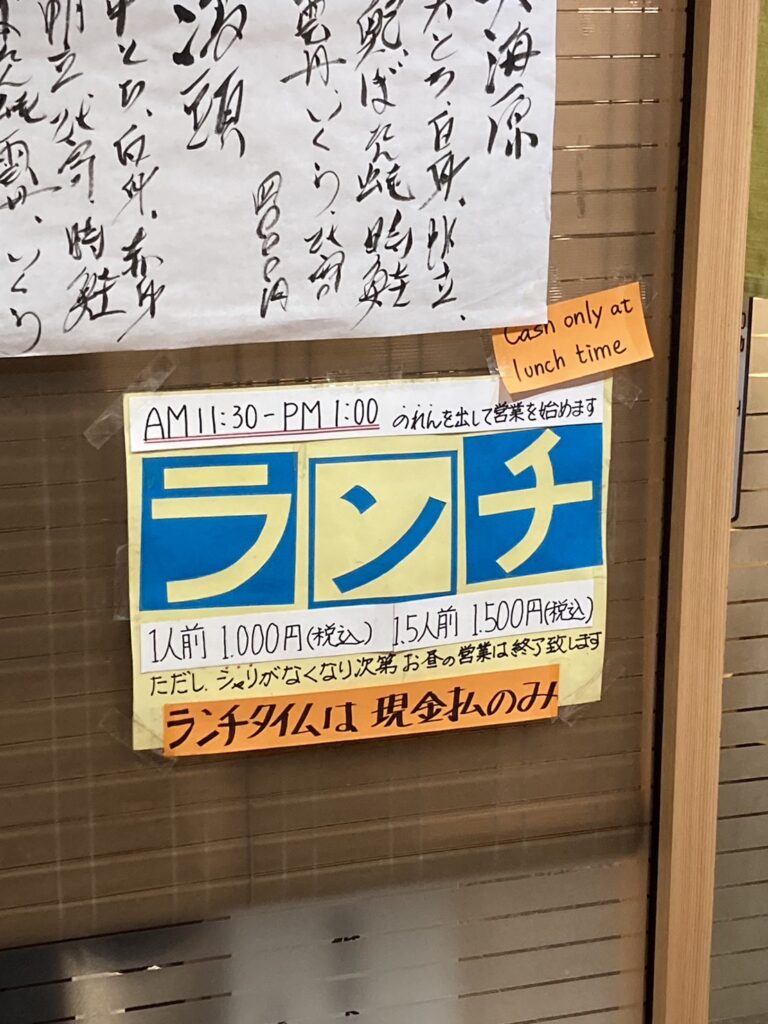 大海原
大とろ、白身、帆立、
鮑、ぼたん蛯、時鮭
雲丹、いくら、
波頭
中とろ、白身、赤身
時鮭
雲丹、いくら
Cash only at
lunch time
AM 11:30 - PM 1:00 のれんを出して営業を始めます
ランチ
1人前 1.000円(税込) 1.5人前 1.500円(税込)
ただし、シャリがなくなり次第お昼の営業は終了致します
ランチタイムは 現金払のみ